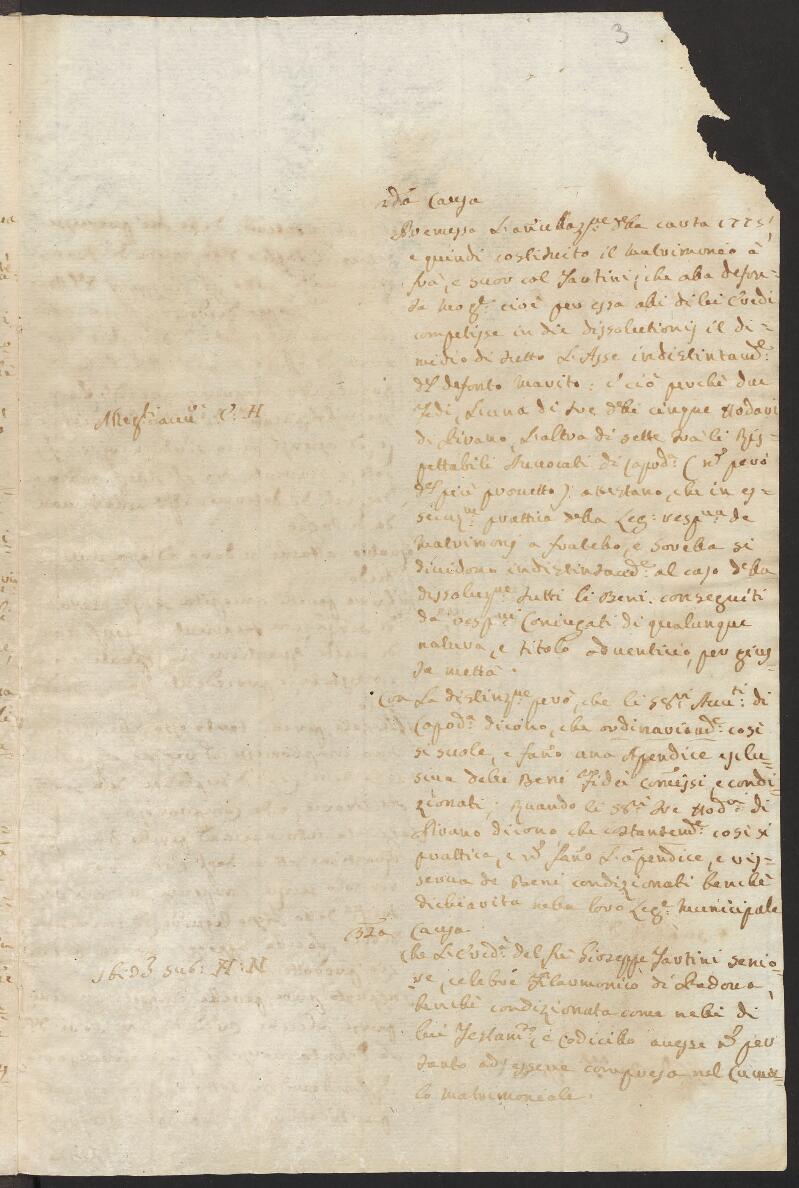 3
2da Causa
Premessa l'anullaz:ne della carta 1775
e quindi costituito il matrimonio à
frà, e suor col Tartini; che alla defon-
ta Mog:e cioè per essa alli di lei Eredi
competisse in die dissolutionis il di-
midio di tutto l'Asse indistintam:e
del defonto marito: e ciò perchè due
Fedi, l'una di tre delli cinque Nodari
di Pirano, l'altra di sette trà li Ris-
pettabili Avvocati di Capod:a (nõ però
del più provetto); attestano, che in es-
secuz:ne prattica della Leg: resp:va de
Matrimonj a fratello, e sorella si
dividono indistintam:e al caso della
dissoluz:ne tutti li Beni conseguiti
dà resp:vi Coniugati di qualunque
natura, e titolo adventicio, per gius-
ta mettà.
Con La distinz:ne però, che li SS:ri Avv:ti di
Capod:a dicono, che ordinariam:e così
si suole, e fano una Apendice esclu-
siva delli Beni Fidei comissi, e condi-
zionati; Quando li SS:ri tre Nod:ri di
Pirano dicono che costantem:e così si
prattica, e nõ fano l'apendice, e ris-
serva de Beni condizionati benchè
dichiarita nella loro Legge Municipale
Alleg: C: H
3za Causa
Che l'Ered:à del fù Gioseppe Tartini senio-
re, celebre Filarmonico di Padova,
benchè condizionata come nelli di
lui Testam:to, e Codicillo avesse nõ per
tanto ad essere compresa nel Cumu-
lo matrimoniale.
sub: H: N